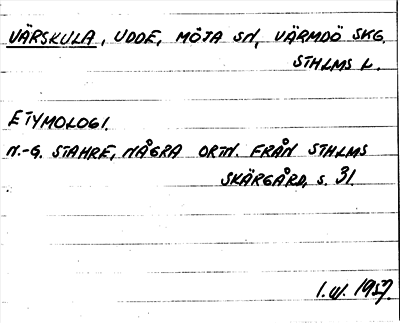 VÄRSKULA, UDDE, MÖJA SN, VÄRMDÖ SKG.
STHLMS L.
ETYMOLOGI.
N.-G. STAHRE, NÅGRA ORTN. FRÅN STHLMS
SKÄRGÅRD, S. 31.
1. 1957.